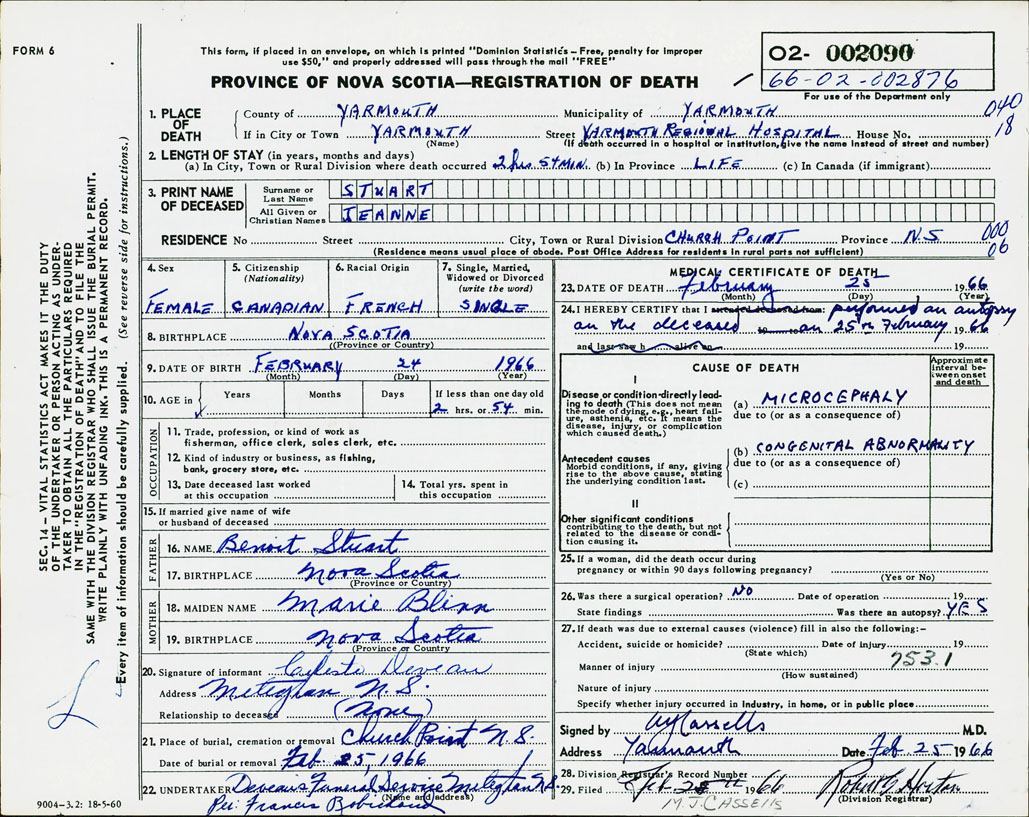 FORM 6
This form, if placed in an envelope, on which is printed "Dominion Statistics – Free, penalty for improper
use $50," and properly addressed will pass through the mail "FREE"
PROVINCE OF NOVA SCOTIA—REGISTRATION OF DEATH
O2- 002090
66-02-002876
For use of the Department only
040
18
1. PLACE OF DEATH
County of YARMOUTH Municipality of YARMOUTH
If in City or Town YARMOUTH Street YARMOUTH REGIONAL HOSPITAL House No.
(Name) (If death occurred in a hospital or institution, give the name instead of street and number)
2. LENGTH OF STAY (in years, months and days)
(a) In City, Town or Rural Division where death occurred 2 hrs. 54 MIN. (b) In Province LIFE (c) In Canada (if immigrant)
3. PRINT NAME OF DECEASED
Surname or Last Name STUART
All Given or Christian Names JEANNE
RESIDENCE No Street City, Town or Rural Division CHURCH POINT Province N.S.
000
06
(Residence means usual place of abode. Post Office Address for residents in rural parts not sufficient)
4. Sex
FEMALE
5. Citizenship
(Nationality)
CANADIAN
6. Racial Origin
FRENCH
7. Single, Married,
Widowed or Divorced
(write the word)
SINGLE
8. BIRTHPLACE NOVA SCOTIA
(Province or Country)
9. DATE OF BIRTH FEBRUARY 24 1966
(Month) (Day) (Year)
10. AGE in Years Months Days If less than one day old
2 hrs. or 54 min.
OCCUPATION
11. Trade, profession, or kind of work as
fisherman, office clerk, sales clerk, etc.
12. Kind of industry or business, as fishing,
bank, grocery store, etc.
13. Date deceased last worked
at this occupation
14. Total yrs. spent in
this occupation
15. If married give name of wife
or husband of deceased
FATHER
16. NAME Benoit Stuart
17. BIRTHPLACE Nova Scotia
(Province or Country)
MOTHER
18. MAIDEN NAME Marie Blinn
19. BIRTHPLACE Nova Scotia
(Province or Country)
20. Signature of informant Celeste Deveau
Address Meteghan N.S.
Relationship to deceased (None)
21. Place of burial, cremation or removal Church Point N.S.
Date of burial or removal Feb. 25, 1966
22. UNDERTAKER Deveau's Funeral Service Meteghan N.S.
(Name and address)
Per: Francis Robichaud
MEDICAL CERTIFICATE OF DEATH
23. DATE OF DEATH February 25 1966
(Month) (Day) (Year)
24. I HEREBY CERTIFY that I performed an autopsy
on the deceased 19 on 25th February 1966
and last saw h alive on 19
CAUSE OF DEATH
Approximate
interval be-
tween onset
and death
I
Disease or condition directly lead-
ing to death (This does not mean
the mode of dying, e.g., heart fail-
ure, asthenia, etc. It means the
disease, injury, or complication
which caused death.)
(a) MICROCEPHALY
due to (or as a consequence of)
Antecedent causes
Morbid conditions, if any, giving
rise to the above cause, stating
the underlying condition last.
(b) CONGENITAL ABNORMALITY
due to (or as a consequence of)
(c)
II
Other significant conditions
contributing to the death, but not
related to the disease or condi-
tion causing it.
25. If a woman, did the death occur during
pregnancy or within 90 days following pregnancy?
(Yes or No)
26. Was there a surgical operation? NO Date of operation 19
State findings Was there an autopsy? YES
27. If death was due to external causes (violence) fill in also the following:–
Accident, suicide or homicide? Date of injury 19
(State which)
753.1
Manner of injury
(How sustained)
Nature of injury
Specify whether injury occurred in Industry, in home, or in public place
Signed by MJ Cassells M.D.
Address Yarmouth Date Feb 25 1966
28. Division Registrar's Record Number
29. Filed Feb 25th 1966 Robert G Horton
(Division Registrar)
M.J. CASSELLS
SEC. 14 – VITAL STATISTICS ACT MAKES IT THE DUTY
OF THE UNDERTAKER OR PERSON ACTING AS UNDER-
TAKER TO OBTAIN ALL THE PARTICULARS REQUIRED
IN THE "REGISTRATION OF DEATH" AND TO FILE THE
SAME WITH THE DIVISION REGISTRAR WHO SHALL ISSUE THE BURIAL PERMIT.
WRITE PLAINLY WITH UNFADING INK. THIS IS A PERMANENT RECORD.
Every item of information should be carefully supplied. (See reverse side for instructions.)
9004–3.2: 18-5-60